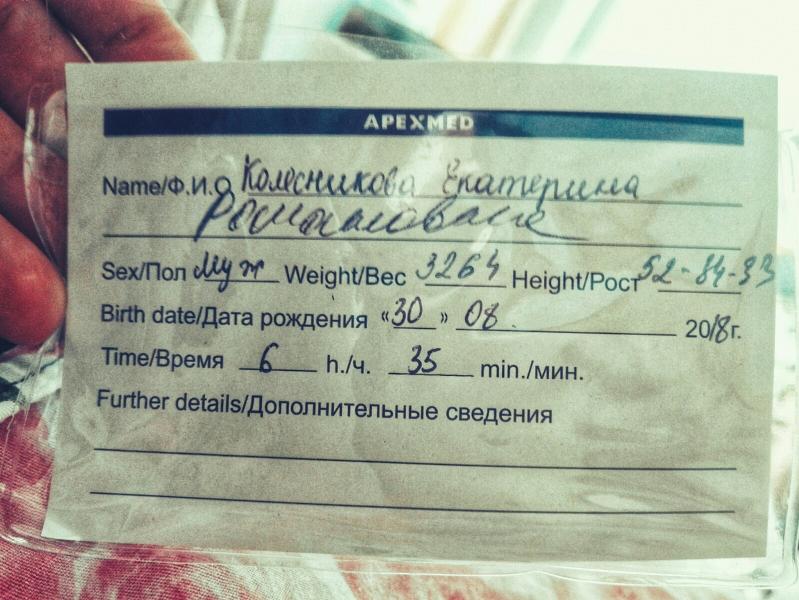 APEXMED
Name/Ф.И.О Колесникова Екатерина
Романовна
Sex/Пол Муж Weight/Вес 3264 Height/Рост 52-84-33
Birth date/Дата рождения «30» 08. 2018г.
Time/Время 6 h./ч. 35 min./мин.
Further details/Дополнительные сведения